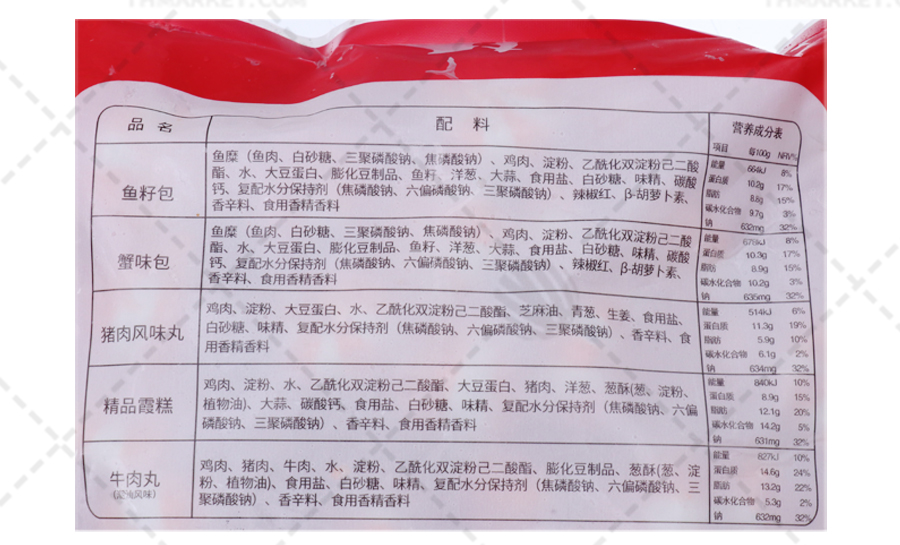 THMARKET.COM
THMARKET.COM
品名
配料
营养成分表
项目 每100g NRV%
鱼籽包
鱼糜（鱼肉、白砂糖、三聚磷酸钠、焦磷酸钠）、鸡肉、淀粉、乙酰化双淀粉己二酸
酯、水、大豆蛋白、膨化豆制品、鱼籽、洋葱、大蒜、食用盐、白砂糖、味精、碳酸
钙、复配水分保持剂（焦磷酸钠、六偏磷酸钠、三聚磷酸钠）、辣椒红、β-胡萝卜素、
香辛料、食用香精香料
能量 664kJ 8%
蛋白质 10.2g 17%
脂肪 8.8g 15%
碳水化合物 9.7g 3%
钠 632mg 32%
蟹味包
鱼糜（鱼肉、白砂糖、三聚磷酸钠、焦磷酸钠）、鸡肉、淀粉、乙酰化双淀粉己二酸
酯、水、大豆蛋白、膨化豆制品、鱼籽、洋葱、大蒜、食用盐、白砂糖、味精、碳酸
钙、复配水分保持剂（焦磷酸钠、六偏磷酸钠、三聚磷酸钠）、辣椒红、β-胡萝卜素、
香辛料、食用香精香料
能量 8%
蛋白质 10.3g 17%
脂肪 8.9g 15%
碳水化合物 10.2g 3%
钠 635mg 32%
猪肉风味丸
鸡肉、淀粉、大豆蛋白、水、乙酰化双淀粉己二酸酯、芝麻油、青葱、生姜、食用盐、
白砂糖、味精、复配水分保持剂（焦磷酸钠、六偏磷酸钠、三聚磷酸钠）、香辛料、食
用香精香料
能量 514kJ 6%
蛋白质 11.3g 19%
脂肪 5.9g 10%
碳水化合物 6.1g 2%
钠 634mg 32%
精品霞糕
鸡肉、淀粉、水、乙酰化双淀粉己二酸酯、大豆蛋白、猪肉、洋葱、葱酥(葱、淀粉、
植物油)、大蒜、碳酸钙、食用盐、白砂糖、味精、复配水分保持剂（焦磷酸钠、六偏
磷酸钠、三聚磷酸钠）、香辛料、食用香精香料
能量 840kJ 10%
蛋白质 8.9g 15%
脂肪 12.1g 20%
碳水化合物 14.2g 5%
钠 631mg 32%
牛肉丸
鸡肉、猪肉、牛肉、水、淀粉、乙酰化双淀粉己二酸酯、膨化豆制品、葱酥(葱、淀
粉、植物油)、食用盐、白砂糖、味精、复配水分保持剂（焦磷酸钠、六偏磷酸钠、三
聚磷酸钠）、香辛料、食用香精香料
能量 827kJ 10%
蛋白质 14.6g 24%
脂肪 13.2g 22%
碳水化合物 5.3g 2%
钠 632mg 32%